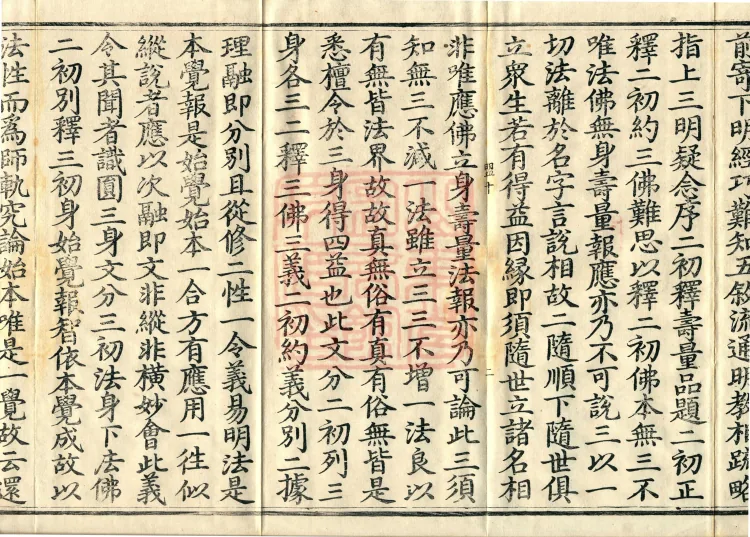 前寄下明經巧難知五敘流通明教相疏略
指上三明疑念序二初釋壽量品題二初正
釋二初約三佛難思以釋二初佛本無三不
唯法佛無身壽量報應亦乃不可說三以一
切法離於名字言說相故二隨順下隨世俱
立眾生若有得益因緣即須隨世立諸名相
非唯應佛立身壽量法報亦乃可論此三須
知無三不減一法雖立三三不增一法良以
有無皆法界故故真無俗有真有俗無皆是
悉檀令於三身得四益也此文分二初列三
身各三二釋三佛三義二初約義分別二據
理融即分別且從修二性一令義易明法是
本覺報是始覺始本一合方有應用一往似
縱說者應以次融即文非縱非橫妙會此義
令其聞者識圓三身文分三初法身下法佛
二初別釋三初身始覺報智依本覺成故以
法性而為師軌究論始本唯是一覺故云還